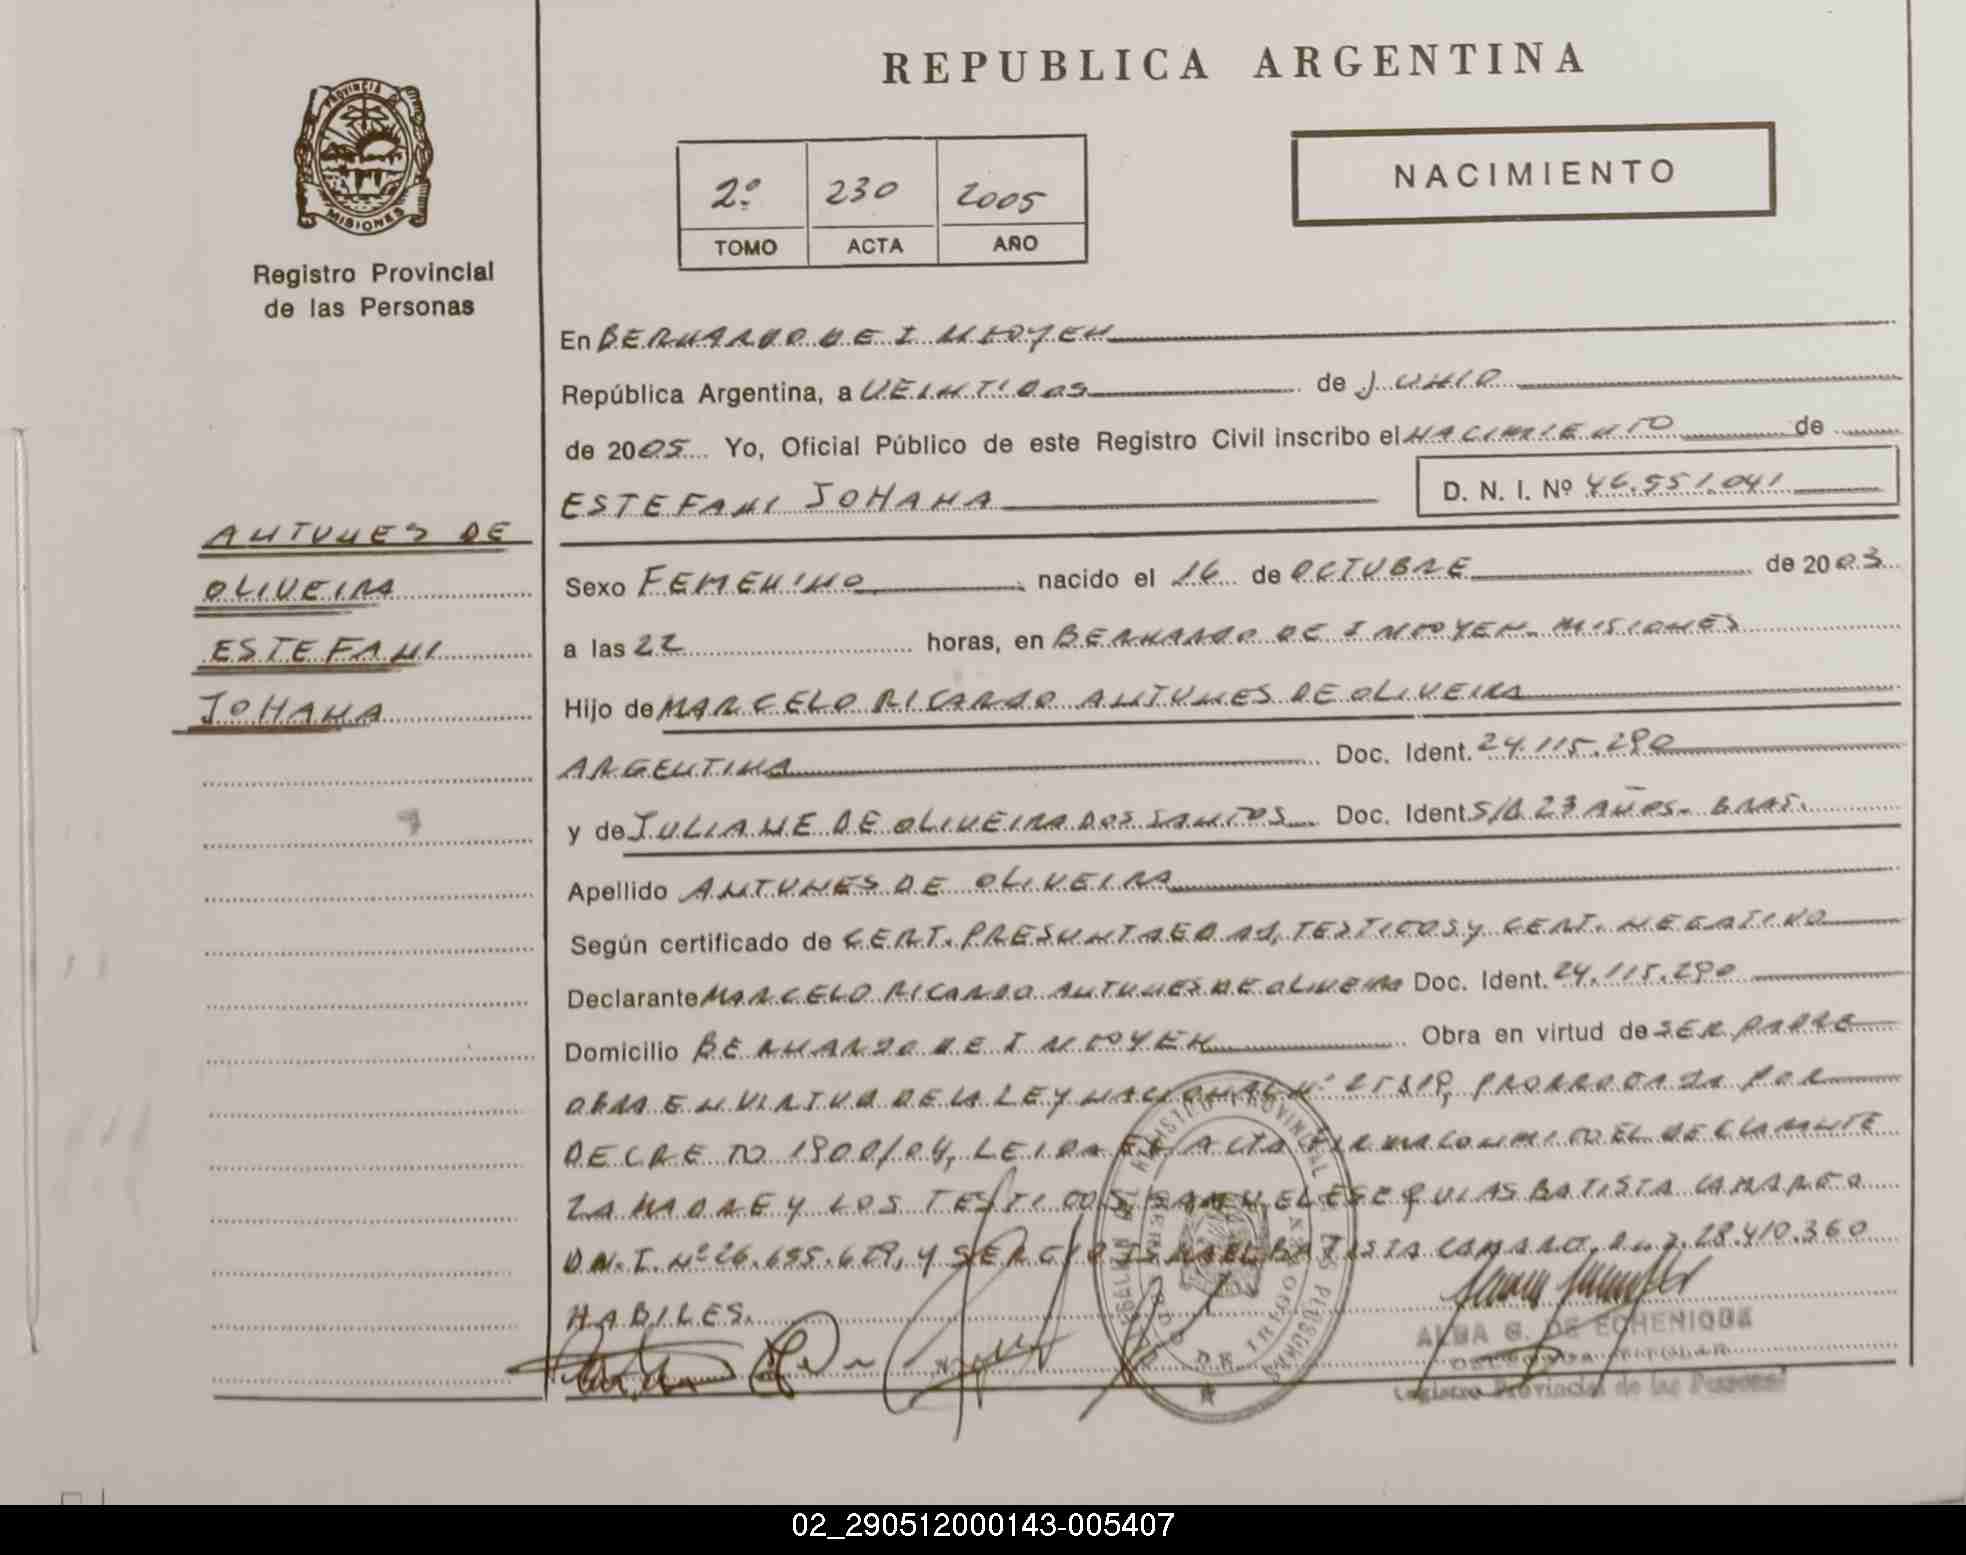 REPUBLICA ARGENTINA
PROVINCIA DE
MISIONES
Registro Provincial
de las Personas
2º 230 2005
TOMO ACTA AÑO
NACIMIENTO
En BERNARDO DE IRIGOYEN
República Argentina, a VEINTIDOS de JUNIO
de 2005 Yo, Oficial Público de este Registro Civil inscribo el NACIMIENTO de
ESTEFANI JOHANA D. N. I. Nº 46.551.041
ANTUNES DE
OLIVEIRA
ESTEFANI
JOHANA
Sexo FEMENINO nacido el 16 de OCTUBRE de 2003
a las 22 horas, en BERNARDO DE IRIGOYEN- MISIONES
Hijo de MARCELO RICARDO ANTUNES DE OLIVEIRA
ARGENTINA Doc. Ident. 24.115.290
y de JULIANE DE OLIVEIRA DOS SANTOS Doc. Ident S/D 23 AÑOS- BRAS.
Apellido ANTUNES DE OLIVEIRA
Según certificado de CERT. PRESUNTA EDAD, TESTIGOS Y CERT. NEGATIVO
Declarante MARCELO RICARDO ANTUNES DE OLIVEIRA Doc. Ident. 24.115.290
Domicilio BERNARDO DE IRIGOYEN Obra en virtud de SER PADRE
OBRA EN VIRTUD DE LA LEY NACIONAL Nº 25819, PRORROGADA POR
DECRETO 1900/04, LEIDA EL ACTA FIRMA CONMIGO EL DECLARANTE
LA MADRE Y LOS TESTIGOS, SAMUEL ESEQUIAS BATISTA CAMARGO
D.N.I. Nº 26.695.629, Y SERGIO ISMAEL BATISTA CAMARGO, D.N.I. 28.410.360
HABILES.
ALBA G. DE ECHENIQUE
DELEGADA TITULAR
Registro Provincial de las Personas
02_290512000143-005407